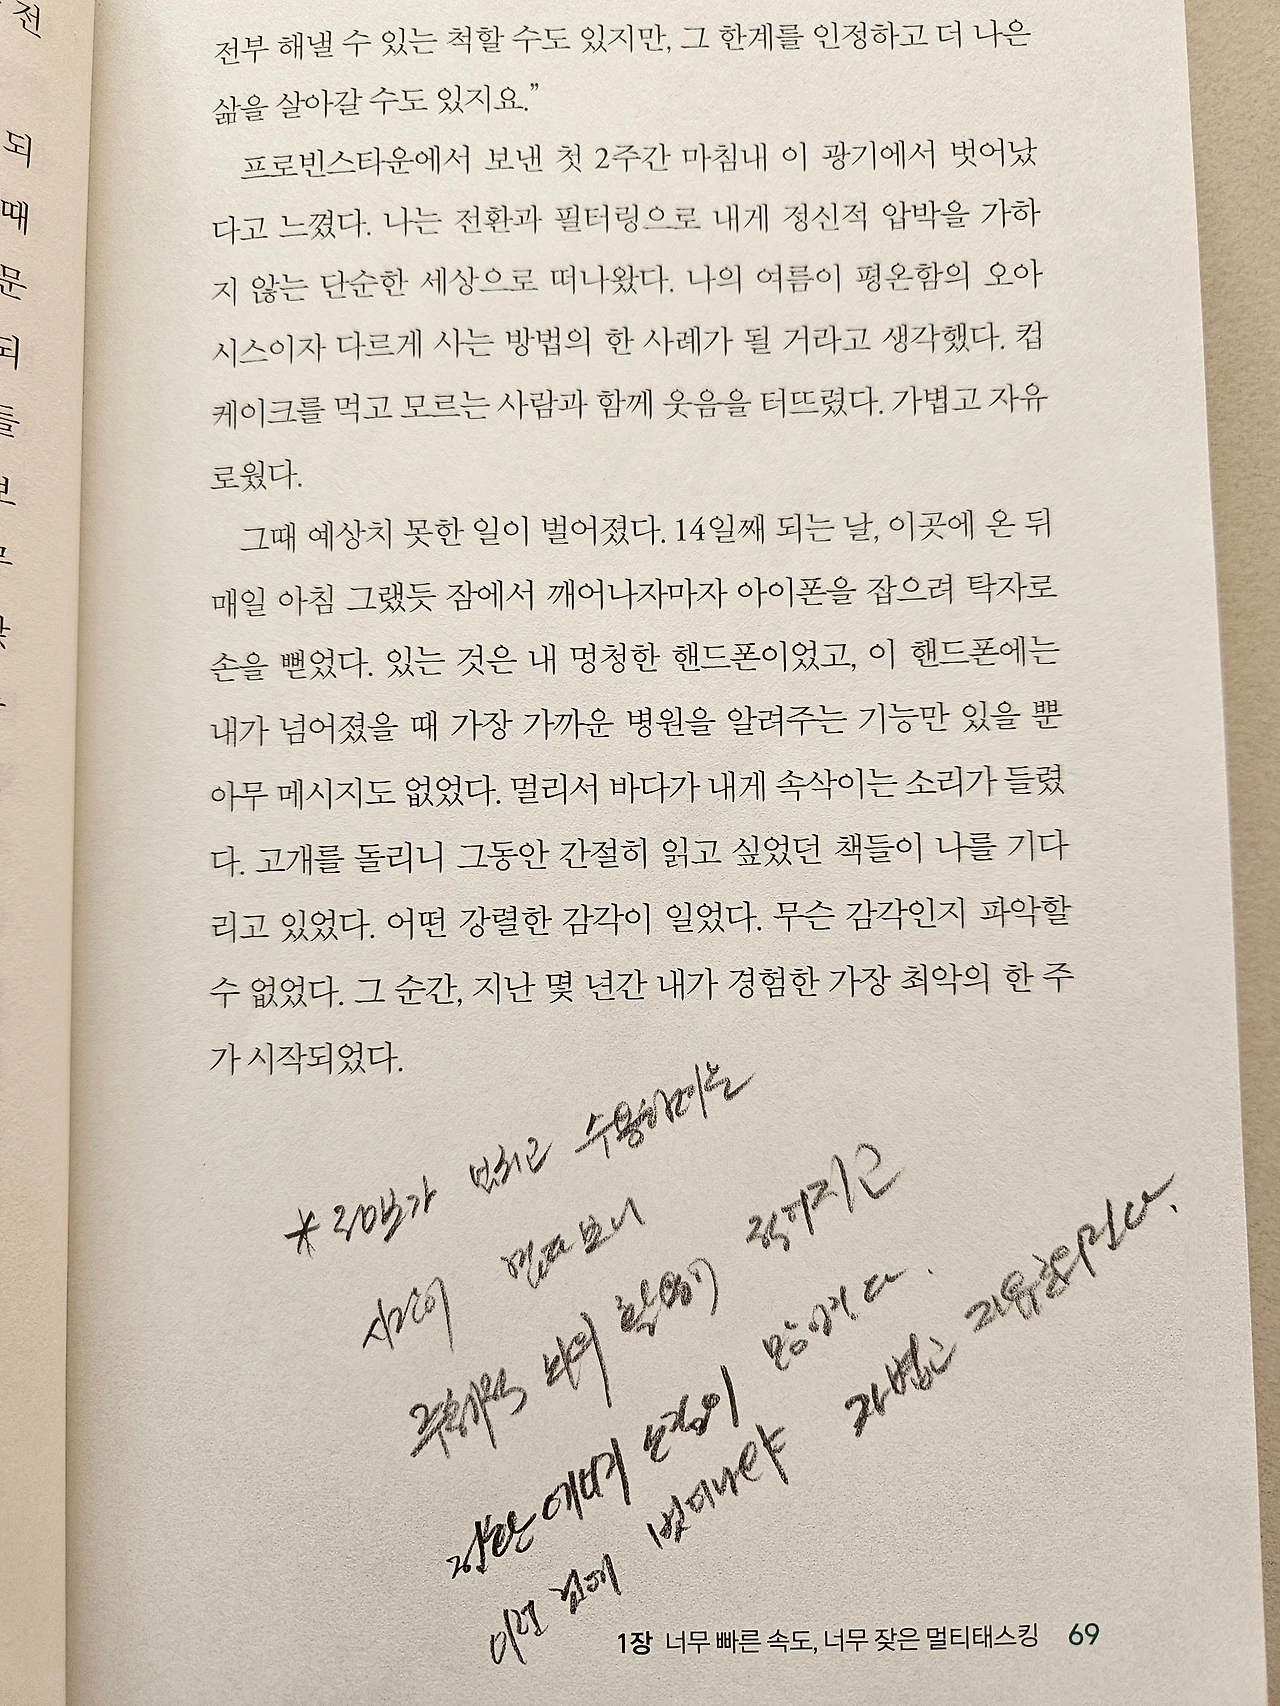 전
되
때
문
되
들
보
전부 해낼 수 있는 척할 수도 있지만, 그 한계를 인정하고 더 나은
삶을 살아갈 수도 있지요.”
프로빈스타운에서 보낸 첫 2주간 마침내 이 광기에서 벗어났
다고 느꼈다. 나는 전환과 필터링으로 내게 정신적 압박을 가하
지 않는 단순한 세상으로 떠나왔다. 나의 여름이 평온함의 오아
시스이자 다르게 사는 방법의 한 사례가 될 거라고 생각했다. 컵
케이크를 먹고 모르는 사람과 함께 웃음을 터뜨렸다. 가볍고 자유
로웠다.
그때 예상치 못한 일이 벌어졌다. 14일째 되는 날, 이곳에 온 뒤
매일 아침 그랬듯 잠에서 깨어나자마자 아이폰을 잡으려 탁자로
손을 뻗었다. 있는 것은 내 멍청한 핸드폰이었고, 이 핸드폰에는
내가 넘어졌을 때 가장 가까운 병원을 알려주는 기능만 있을 뿐
아무 메시지도 없었다. 멀리서 바다가 내게 속삭이는 소리가 들렸
다. 고개를 돌리니 그동안 간절히 읽고 싶었던 책들이 나를 기다
리고 있었다. 어떤 강렬한 감각이 일었다. 무슨 감각인지 파악할
수 없었다. 그 순간, 지난 몇 년간 내가 경험한 가장 최악의 한 주
가 시작되었다.
* 정보가 넘치고 수용하려는
사람이 보니
뇌의 적어지고
이런 벗어나야 가볍고 자유로워진다.
1장 너무 빠른 속도, 너무 잦은 멀티태스킹 69